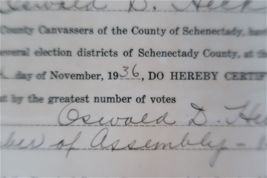 Oswald D. Heck
County Canvassers of the County of Schenectady, hav
veral election districts of Schenectady County, at the
day of November, 1936, DO HEREBY CERTIF
at by the greatest number of votes
Oswald D. He
ber of Assembly -